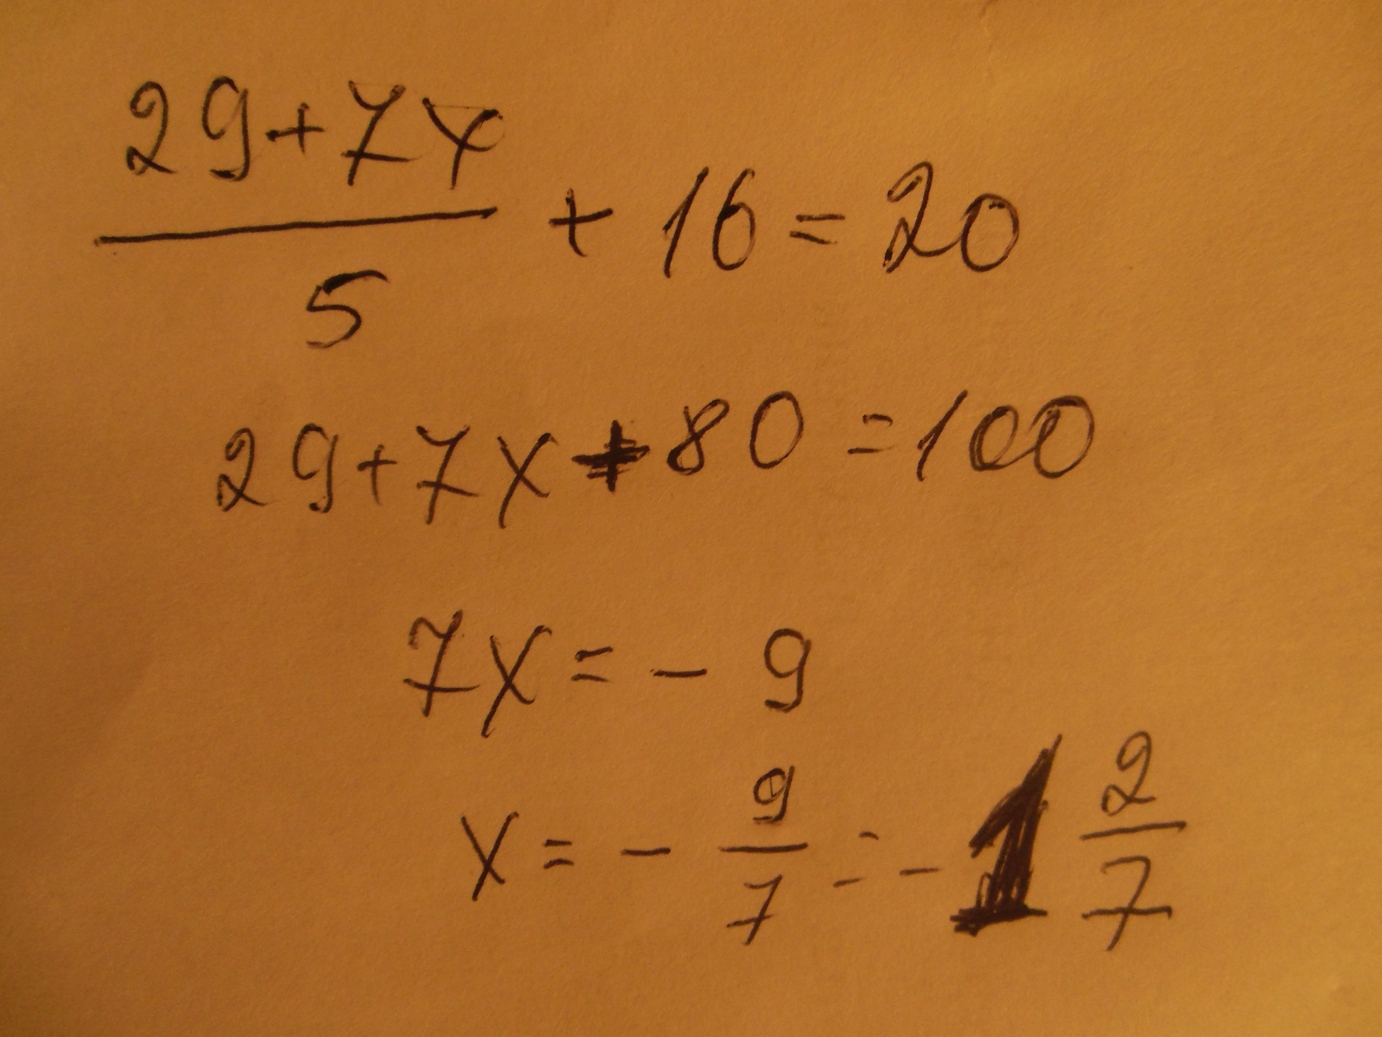 29+7x
5
+ 16 = 20
29+7x+80=100
7x = - 9
x = - 9/7 = - 1 2/7